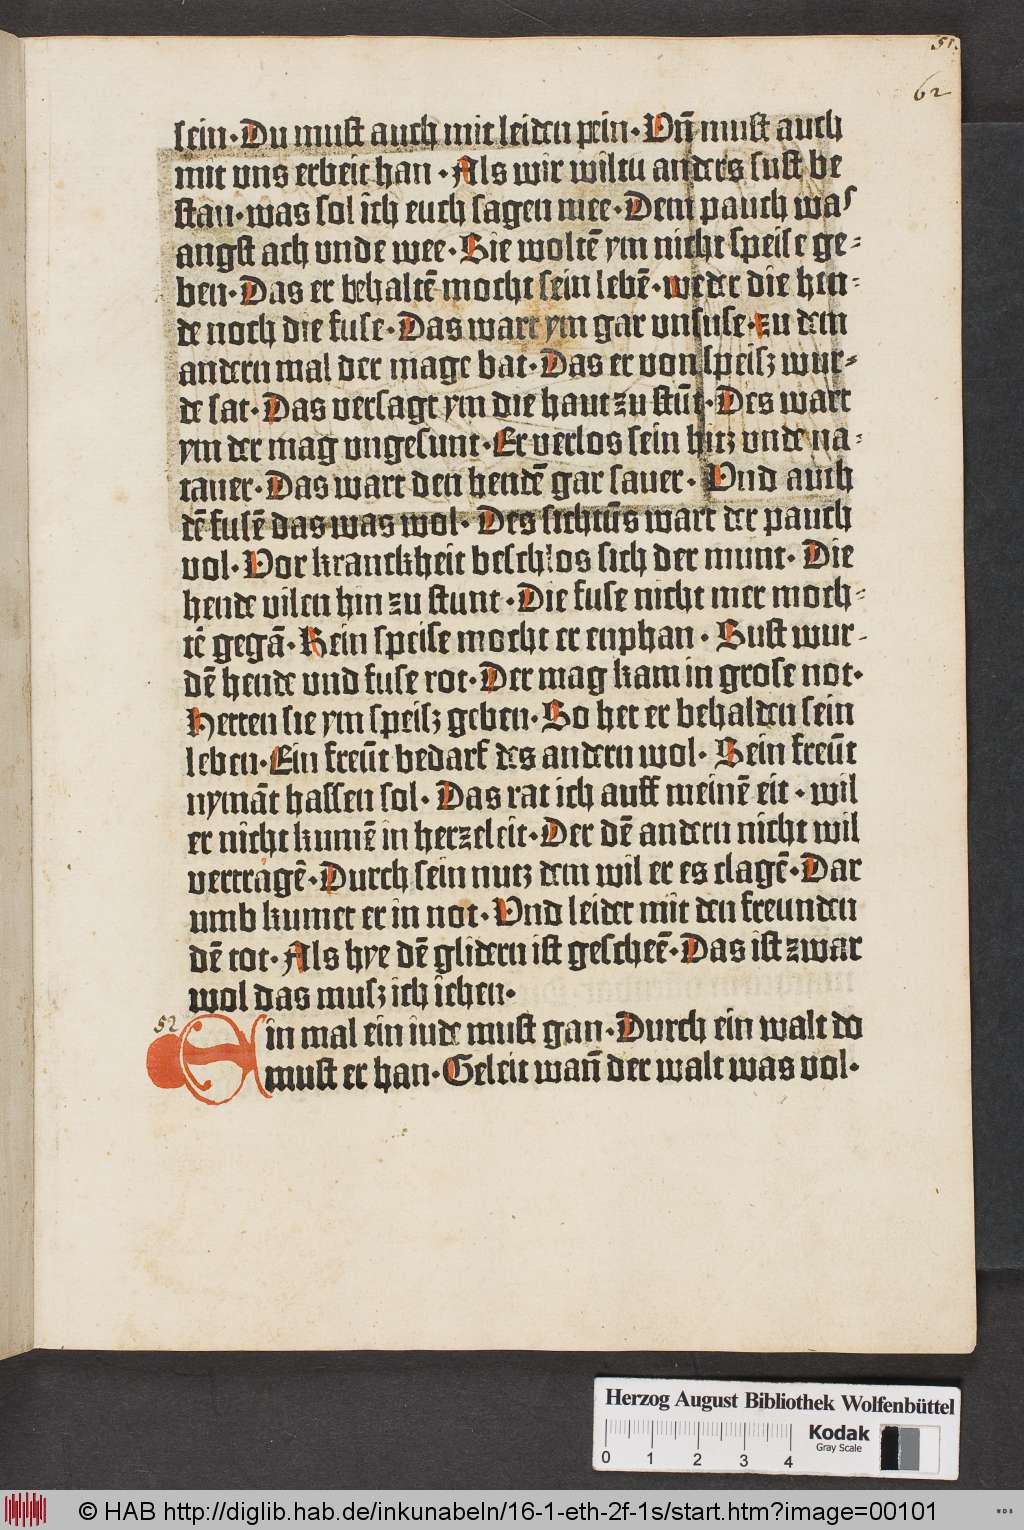 51.
62
sein·Du must auch mit leiden pein·Vñ must auch
mit vns erbeit han·Als wir wiltu anders sust be
stan·was sol ich euch sagen mee·Dem pauch was
angst ach vnde wee·Sie woltē ym nicht speise ge-
ben·Das er behaltē mocht sein lebē·weder die hen-
de noch die fuse·Das wart ym gar vnsuse·zu dem
andern mal der mage bat·Das er von speisz wur-
de sat·Das versagt ym die haut zu stūt·Des wart
ym der mag vngesunt·Er verlos sein hitz vnde na-
tauer·Das wart den hendē gar sauer·Vnd auch
dē fusē das was wol·Des sichtūs wart der pauch
vol·Vor kranckheit beschlos sich der munt·Die
hende vilen hin zu stunt·Die fuse nicht mer moch-
tē gegā·Kein speise mocht er enphan·Sust wur-
dē hende vnd fuse rot·Der mag kam in grose not·
Hetten sie ym speisz geben·So het er behalden sein
leben·Ein freūt bedarf des andern wol·Sein freūt
nymāt hassen sol·Das rat ich auff meinē eit·wil
er nicht kumē in herzeleit·Der dē andern nicht wil
vertragē·Durch sein nutz dem wil er es clagē·Dar
vmb kumet er in not·Vnd leidet mit den freunden
dē tot·Als hye dē glidern ist gescheē·Das ist zwar
wol das musz ich iehen·
52
Ein mal ein iude must gan·Durch ein walt do
must er han·Geleit wañ der walt was vol·
Herzog August Bibliothek Wolfenbüttel
0 1 2 3 4
Kodak
Gray Scale
© HAB http://diglib.hab.de/inkunabeln/16-1-eth-2f-1s/start.htm?image=00101